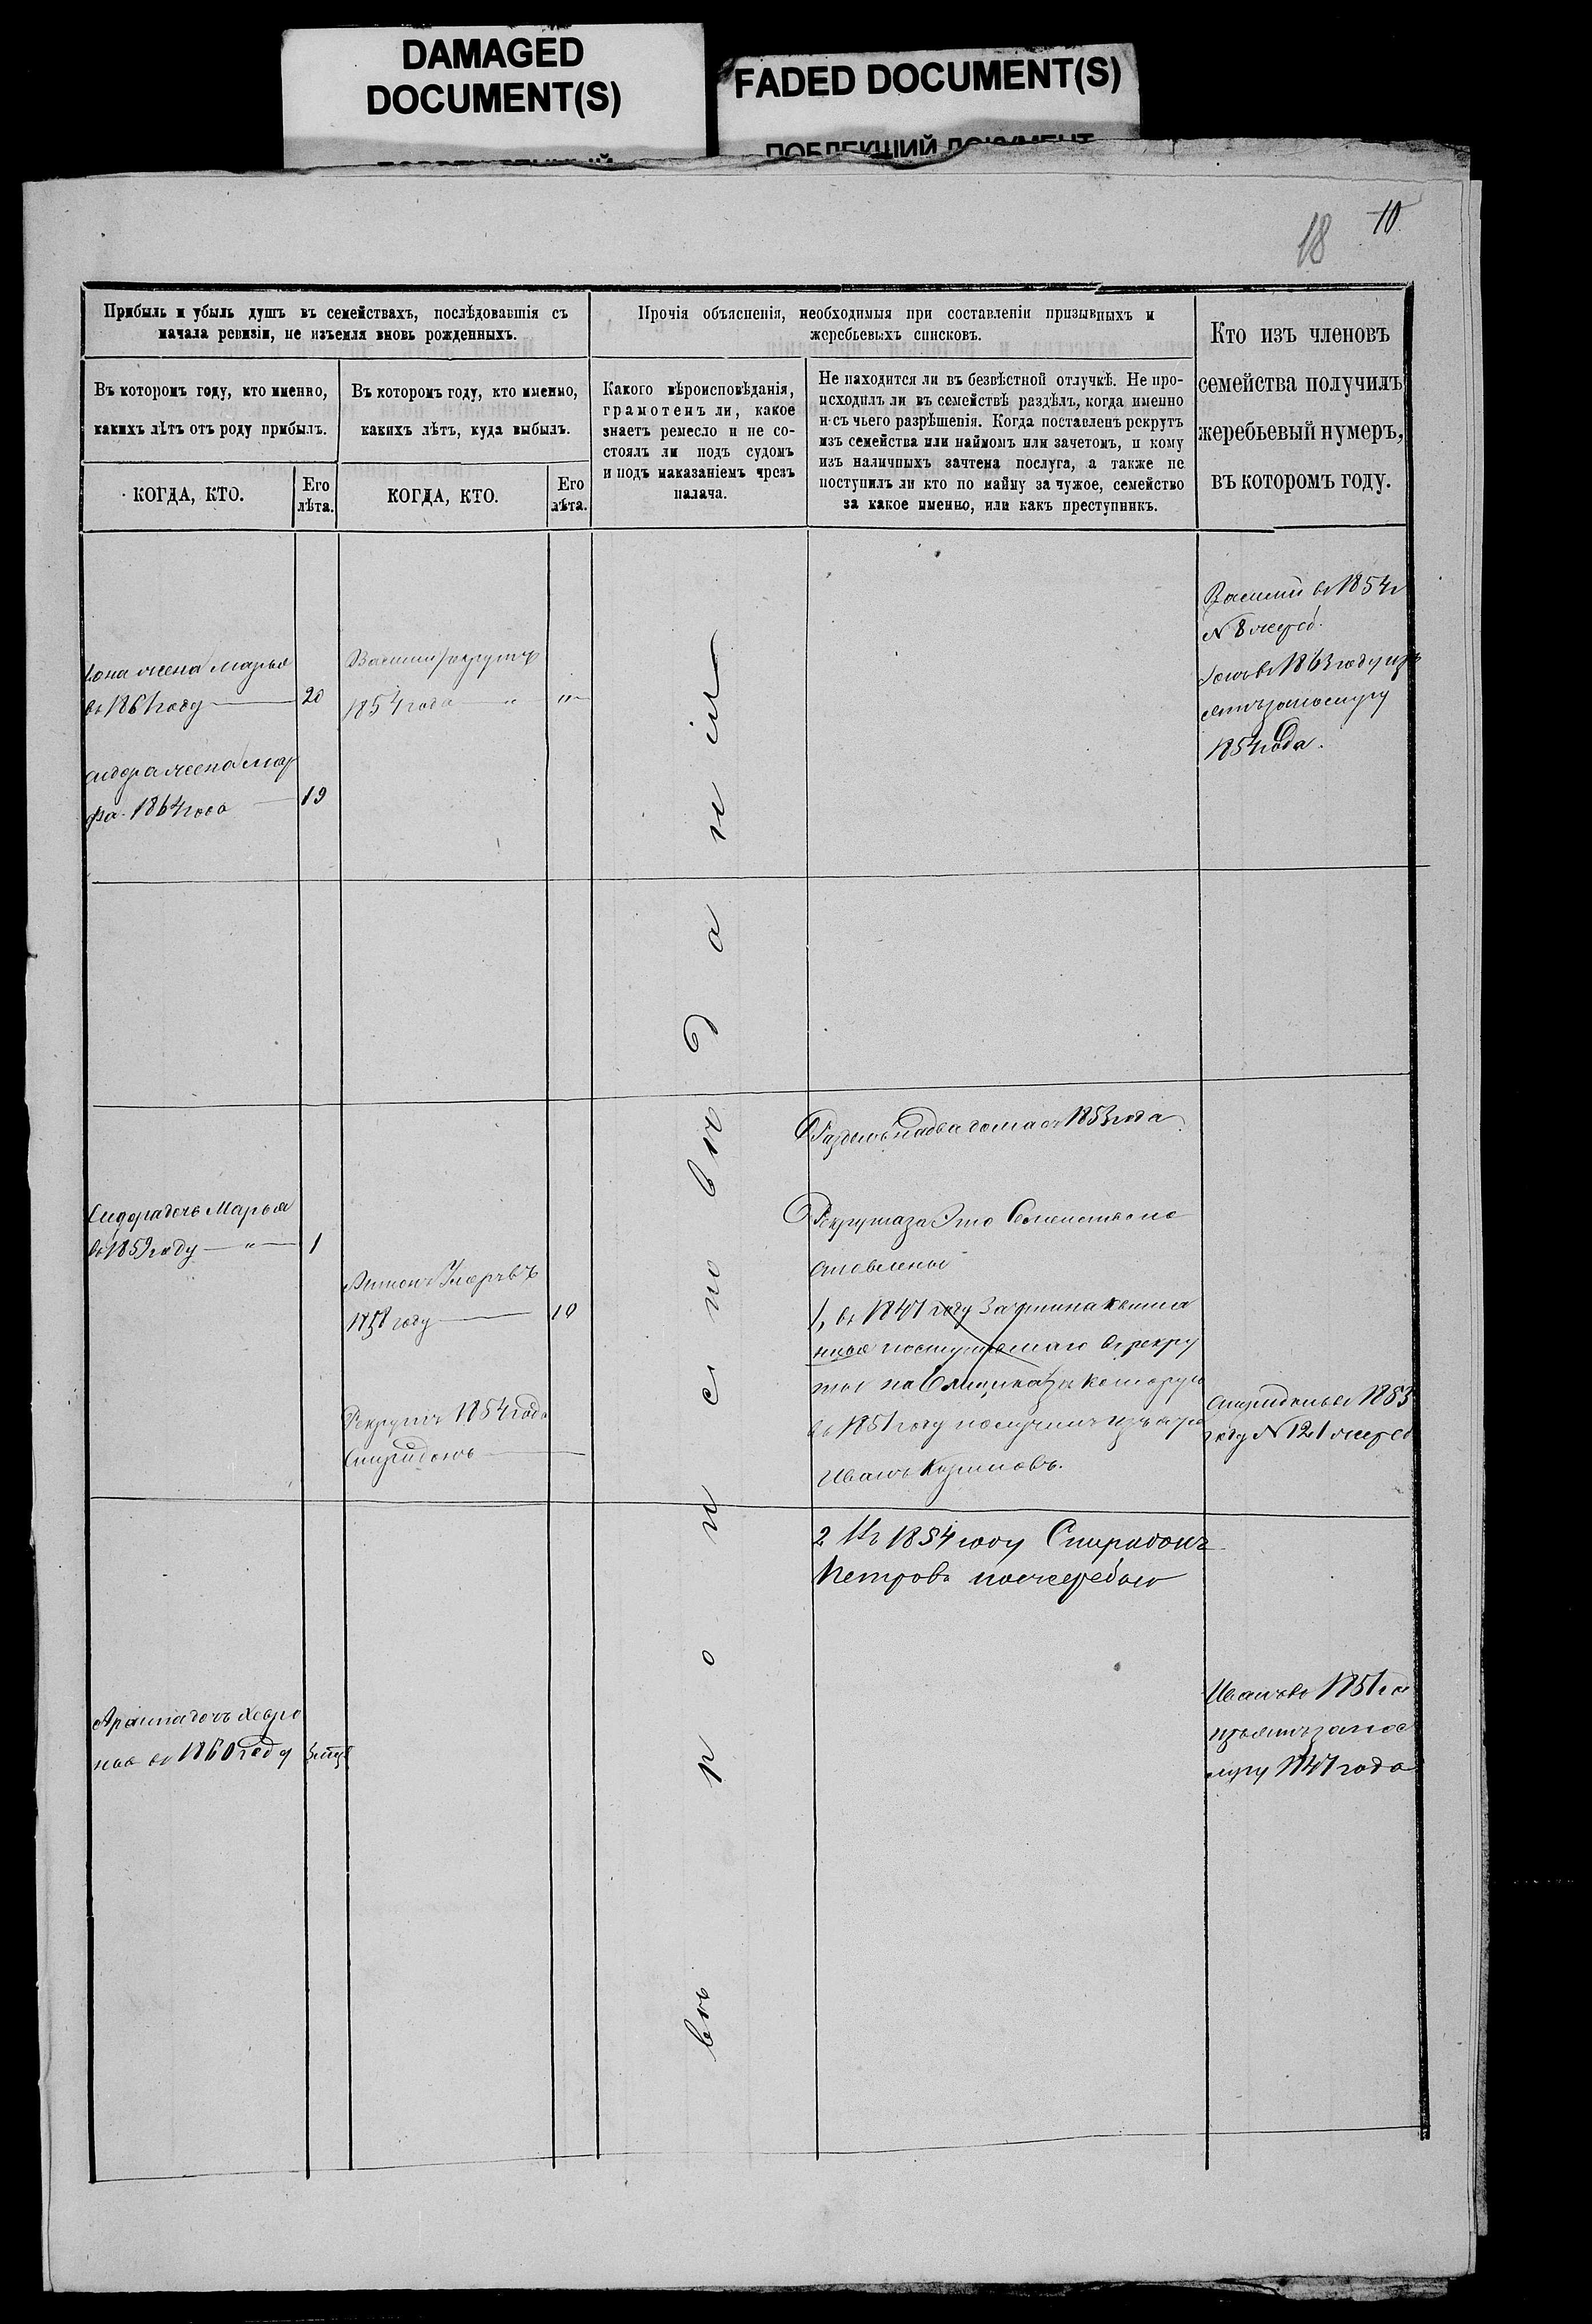 DAMAGED
DOCUMENT(S)
FADED DOCUMENT(S)
ПОБЛЕКШИЙ ДОКУМЕНТ
18 10
Прибыль и убыль душъ въ семействахъ, послѣдовавшія съ
начала ревизіи, не изъемля вновь рожденныхъ.
Въ которомъ году, кто именно,
какихъ лѣтъ отъ роду прибылъ.
КОГДА, КТО.
Его
лѣта.
Въ которомъ году, кто именно,
какихъ лѣтъ, куда выбылъ.
КОГДА, КТО.
Его
лѣта.
Прочія объясненія, необходимыя при составленіи призывныхъ и
жеребьевыхъ списковъ.
Какого вѣроисповѣданія,
грамотенъ ли, какое
знаетъ ремесло и не со-
стоялъ ли подъ судомъ
и подъ наказаніемъ чрезъ
палача.
Не находится ли въ безвѣстной отлучкѣ. Не про-
исходилъ ли въ семействѣ раздѣлъ, когда именно
и съ чьего разрѣшенія. Когда поставленъ рекрутъ
изъ семейства или наймомъ или зачетомъ, и кому
изъ наличныхъ зачтена послуга, а также не
поступилъ ли кто по найму за чужое, семейство
за какое именно, или какъ преступникъ.
Кто изъ членовъ
семейства получилъ
жеребьевый нумеръ,
въ которомъ году.
жена Марья
въ 1861 году 20
жена Мар
фа. 1864 года 19
Василий рекрутъ
1854 года "
Василий въ 1854 г
№ 8 жереб.
въ 1863 году изъ
1854 года.
Сидора дочь Марья
въ 1859 году " 1
1858 году 10
Рекрутъ 1854 года
Спиридонъ
вѣроисповѣданія
Раздѣлъ на два дома въ 1853 года
Рекрута за Это Семейство по
ставлены
1, въ 1847 году
въ рекру
ты
въ 1851 году получилъ
Иванъ
Спиридонъ въ 1853
году № 121 жереб
2 Въ 1854 году Спиридонъ
Петровъ по жеребью
дочь Хевро
нья въ 1860 году
Иванъ въ 1851 го
изъятъ за пос
лугу 1847 года